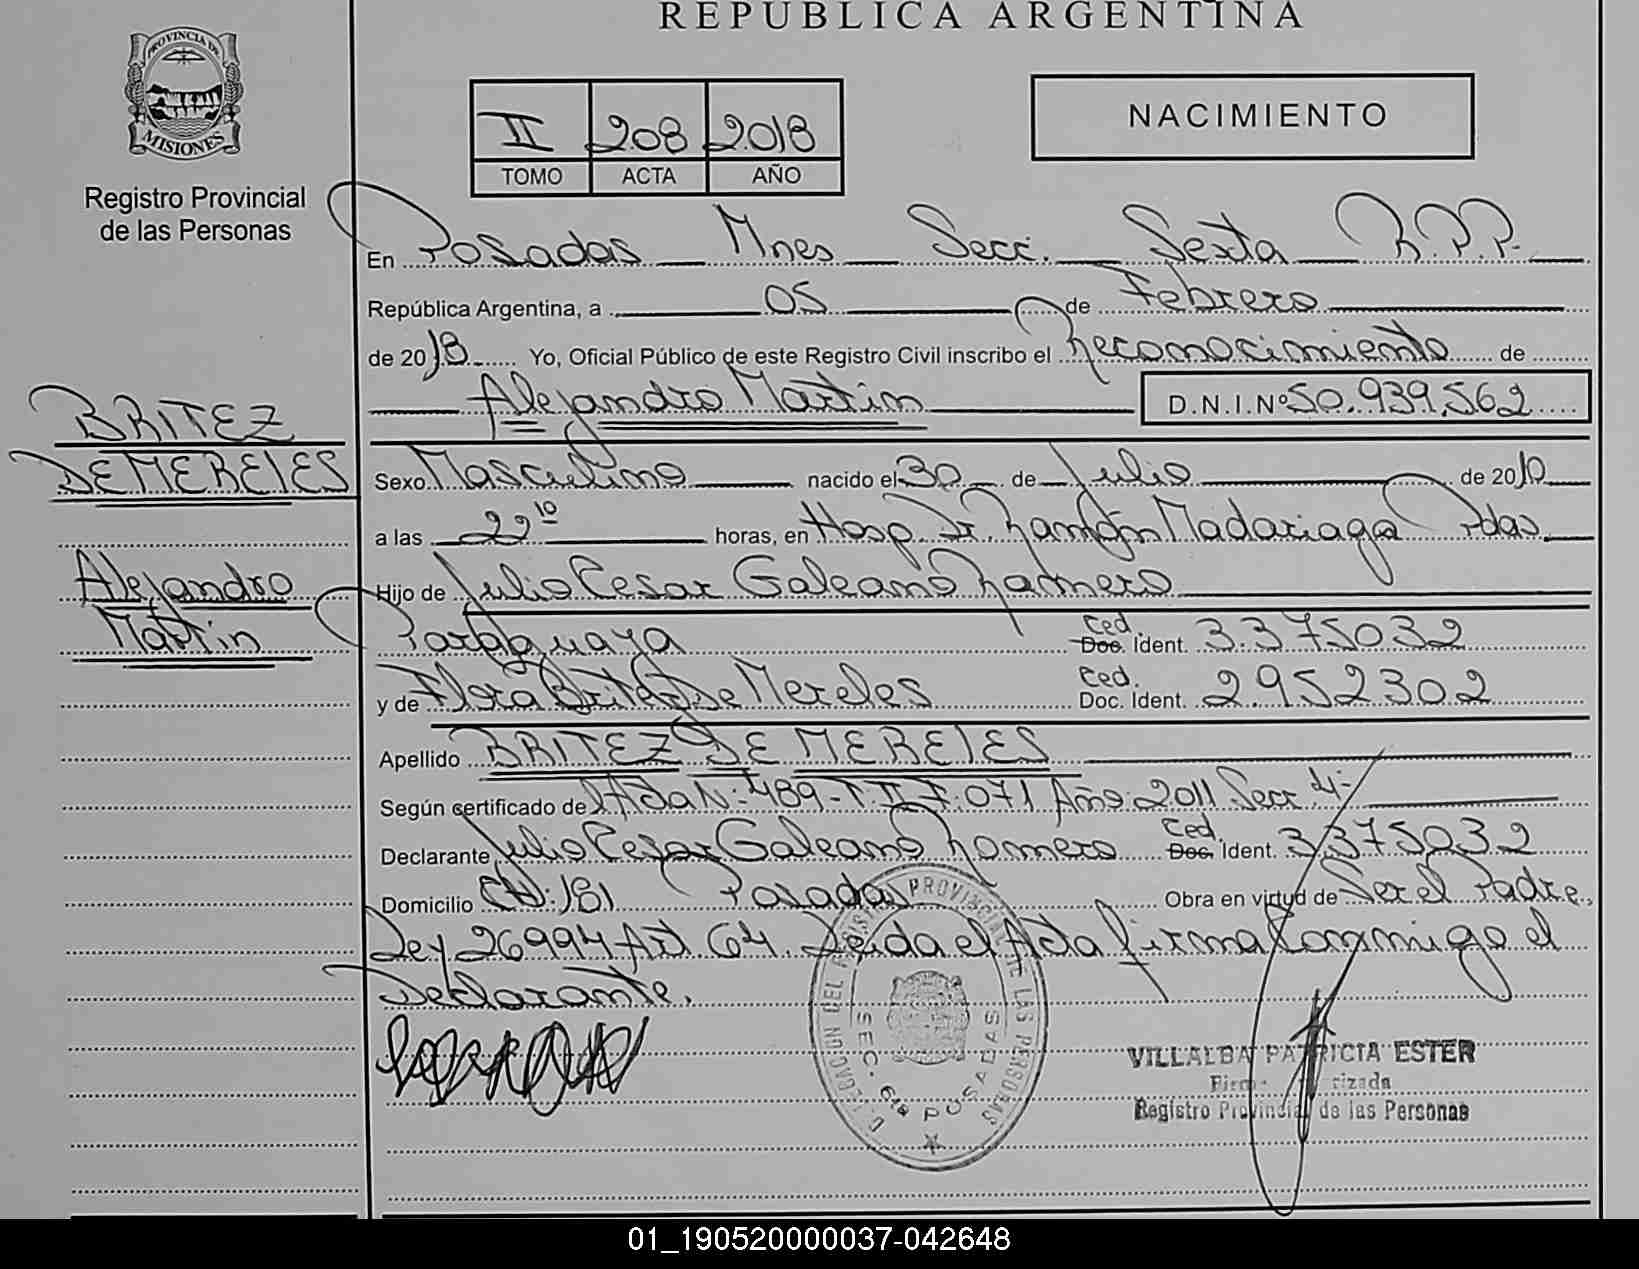 REPUBLICA ARGENTINA
PROVINCIA DE
MISIONES
Registro Provincial
de las Personas
II 208 2018
TOMO ACTA AÑO
NACIMIENTO
En Posadas Mnes Secc. Sexta R.P.P.
República Argentina, a 05 de Febrero
de 2018 Yo, Oficial Público de este Registro Civil inscribo el Reconocimiento de
Alejandro Martin D.N.I.Nº 50.939.562
BRITEZ
DE MERELES
Alejandro
Martin
Sexo Masculino nacido el 30 de Julio de 2010
a las 22 10 horas, en Hosp. Dr. Ramón Madariaga Pdas
Hijo de Julio Cesar Galeano Ramero
Paraguaya Ced. Doc. Ident. 3.375032
y de Flora Britez De Mereles Ced. Doc. Ident. 2952302
Apellido BRITEZ DE MERELES
Según certificado de Acta N: 489-T.II F.071 Año 2011 Secc 4-
Declarante Julio Cesar Galeano Romero Ced. Doc. Ident. 3.375032
Domicilio CH:181 Posadas Obra en virtud de Ser el Padre,
Ley 26994 Art. 64. Leida el Acta firma Conmigo el
Declarante.
DEL REGISTRO PROVINCIAL DE LAS PERSONAS
SEC. 6ta POSADAS
VILLALBA PATRICIA ESTER
Registro Provincial de las Personas
01_190520000037-042648